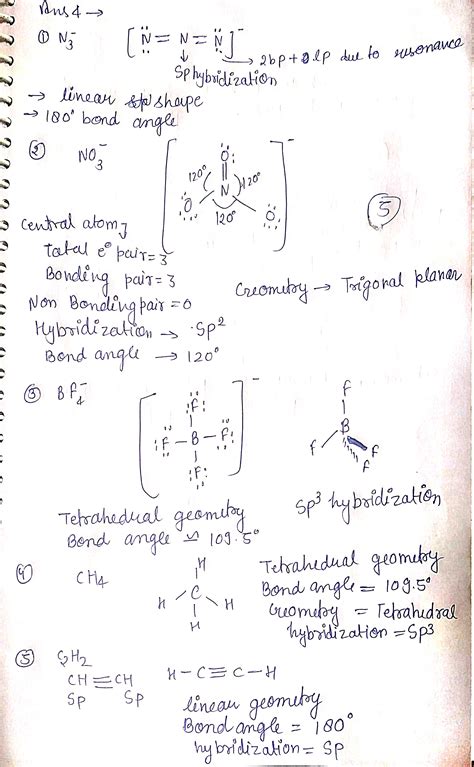 Ans 4 →
① N₃⁻ [N̈ = N = N̈]⁻
→ 2bp + 0lp due to resonance
Sp hybridization
→ linear shape
→ 180° bond angle
② NO₃⁻
Ö:
||
120° N 120°
:Ö: Ö:
120°
⁻
⑤
Central atom]
total e⁻ pair = 3
Bonding pair = 3
Non Bonding pair = 0
Geometry → Trigonal planar
Hybridization → Sp²
Bond angle → 120°
③ BF₄⁻
:F̈:
:F̈ – B – F̈:
:F̈:
⁻
F
B
F F
F
Sp³ hybridization
Tetrahedral geometry
Bond angle ≃ 109.5°
④ CH4
H
C
H H
H
Tetrahedual geometry
Bond angle = 109.5°
Geometry = Tetrahedral
hybridization = Sp3
⑤ C₂H₂
CH ≡ CH H – C ≡ C – H
Sp Sp
linear geometry
Bond angle = 180°
hybridization = Sp